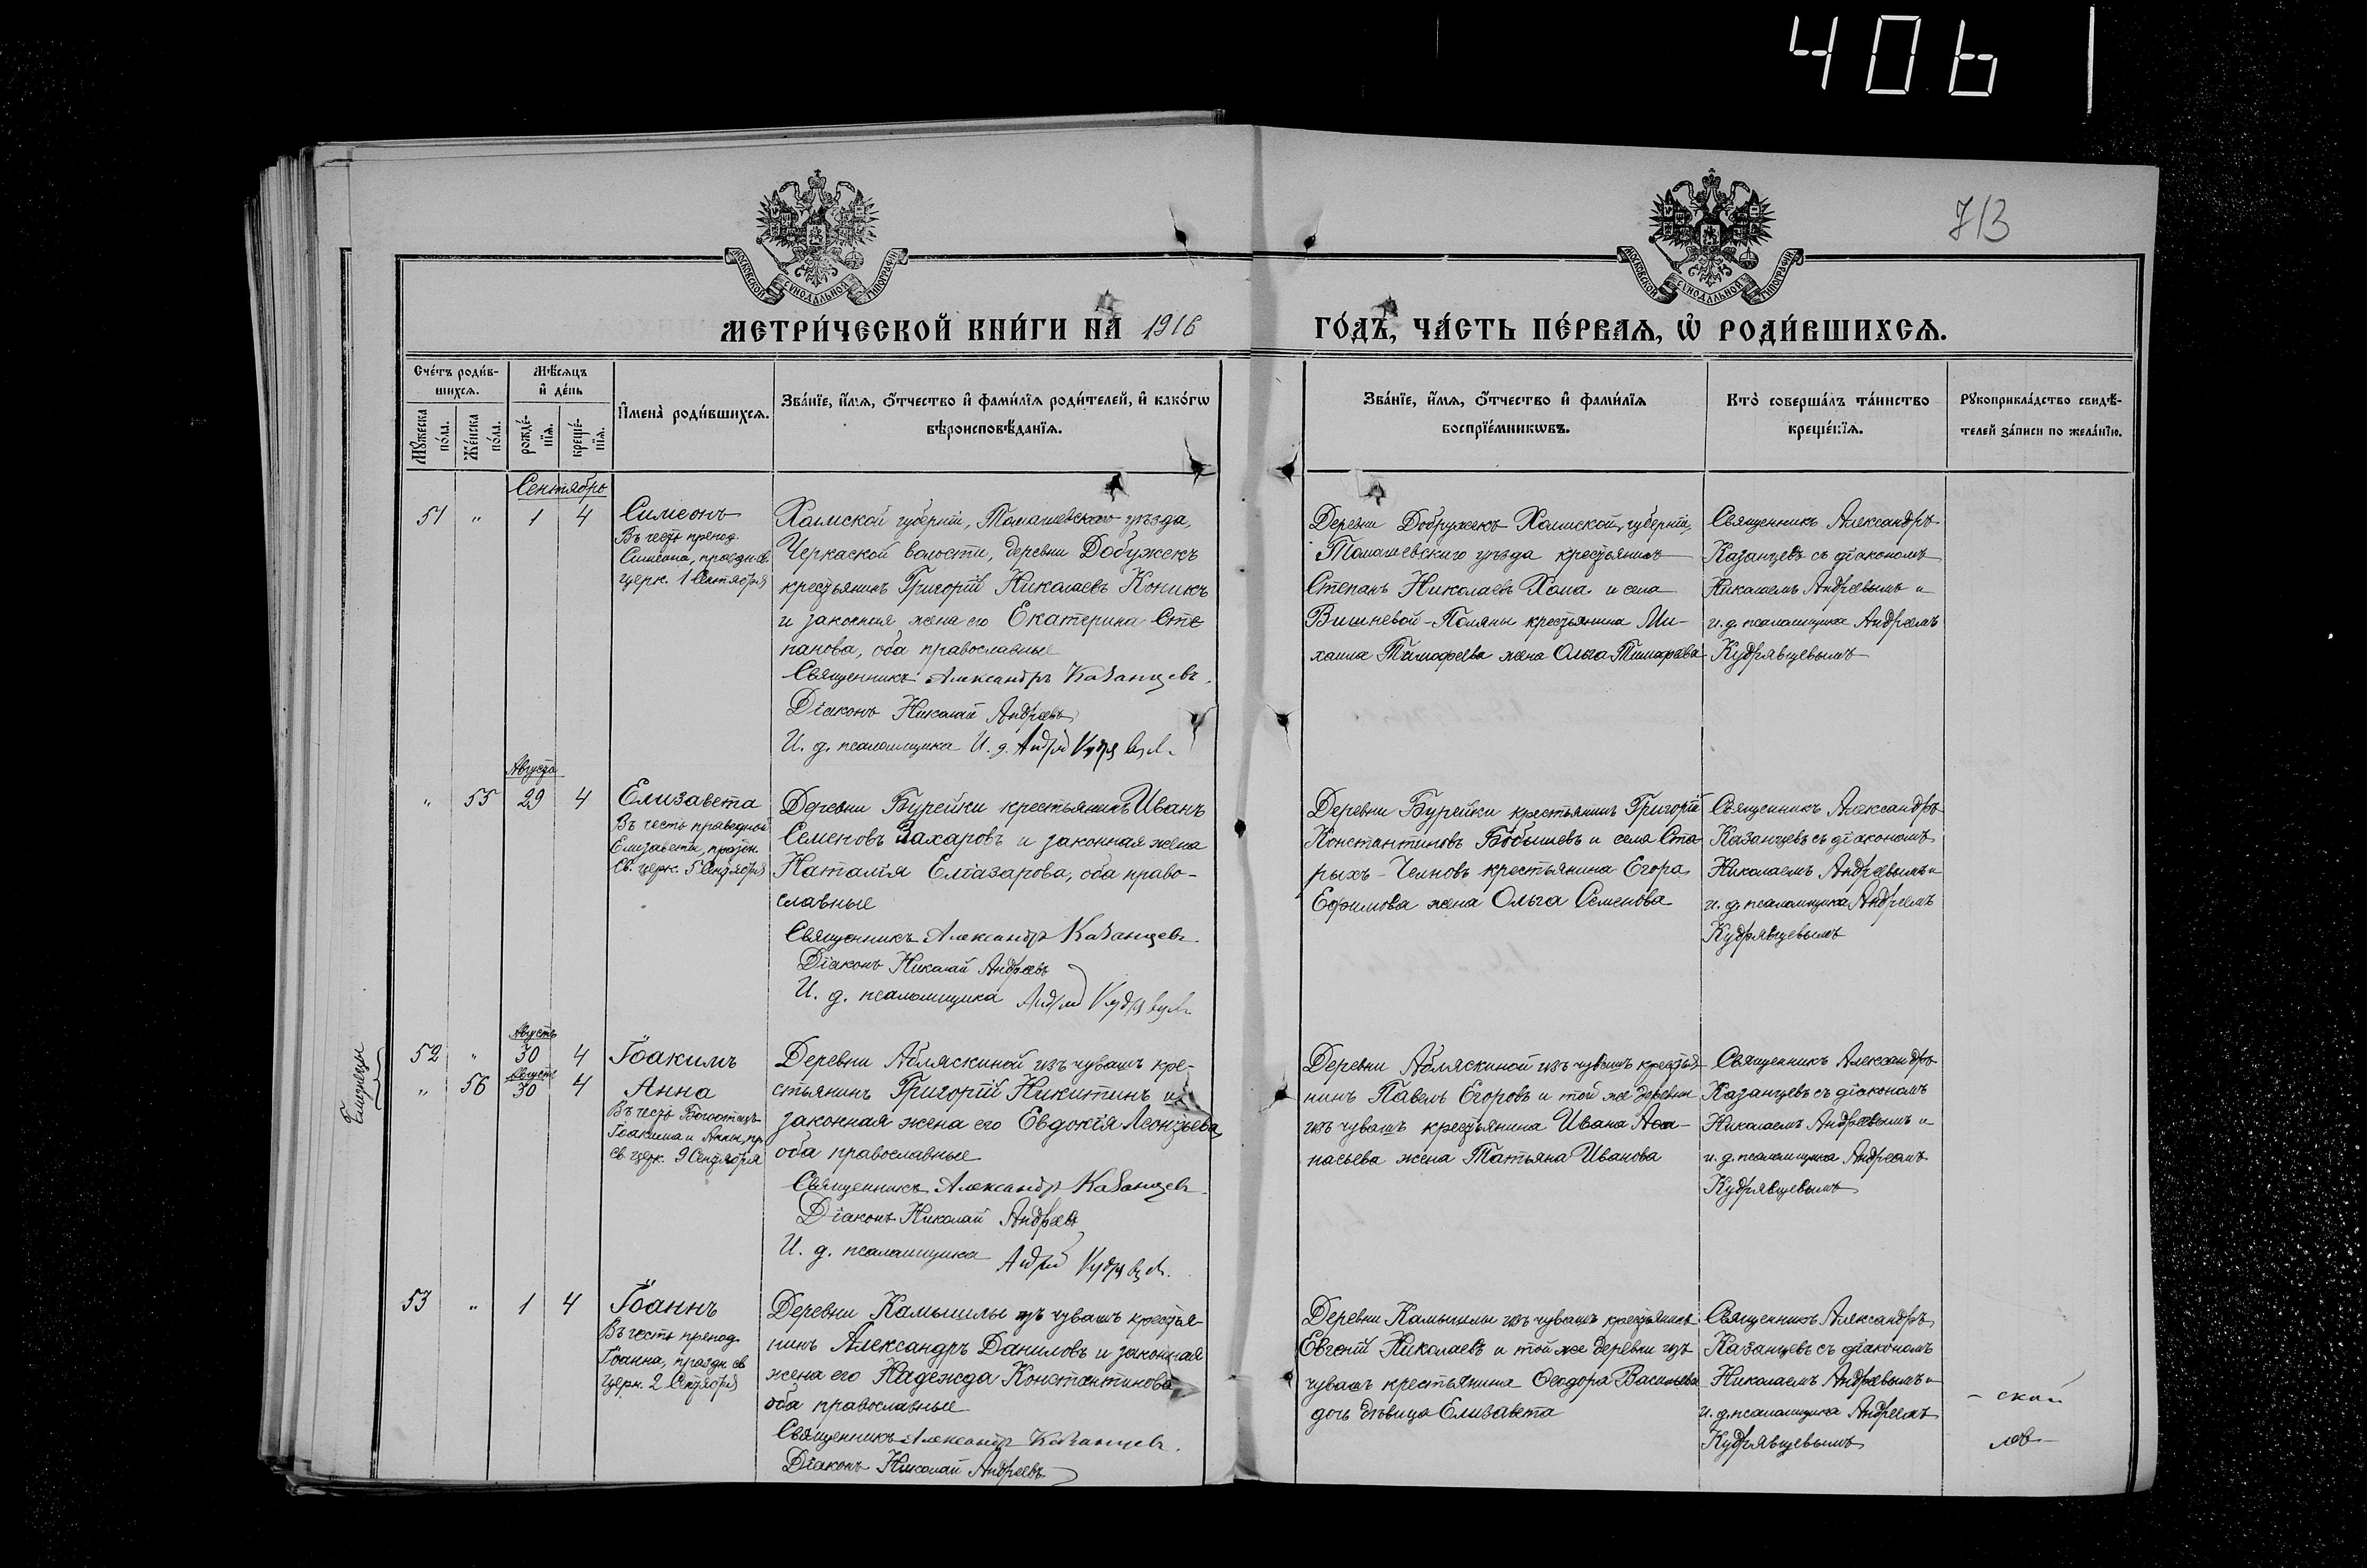 406
713
МОСКОВСКОЙ СѴНОДАЛЬНОЙ ТИПОГРАФІИ
МОСКОВСКОЙ СѴНОДАЛЬНОЙ ТИПОГРАФІИ
МЕТРИ́ЧЕСКОЙ КНИ́ГИ НА 1916
ГО́ДЪ, ЧА́СТЬ ПЕ́РВАѦ, Ѡ҆ РОДИ́ВШИХСѦ.
Сче́тъ роди́в-
шихсѧ.
Мꙋ́жеска
по́ла.
Же́нска
по́ла.
Мѣ́сѧцъ
и҆ де́нь
рожде́-
нїѧ.
креще́-
нїѧ.
И҆мена̀ роди́вшихсѧ.
Зва́нїе, и҆́мѧ, ѻ҆́тчество и҆ фами́лїѧ роди́телей, и҆ како́гѡ
вѣроисповѣ́данїѧ.
Зва́нїе, и҆́мѧ, ѻ҆́тчество и҆ фами́лїѧ
воспрїе́мникѡвъ.
Кто̀ соверша́лъ та́инство
креще́нїѧ.
Рꙋкоприкла́дство свидѣ́-
телей за́писи по жела́нїю.
Сентябрь
51 " 1 4
Симеонъ
Въ честь препод.
Симеона, праздн. св.
церк. 1 Сентября
Холмской губерніи, Томашевскаго уѣзда,
Черкаской волости, деревни Добужекъ
крестьянинъ Григорій Николаевъ Коникъ
и законная жена его Екатерина Сте
панова, оба православные
Священникъ Александръ Казанцевъ.
Діаконъ Николай Андреевъ
И. д. псаломщика И. д. Андрей Кудрявцевъ
Деревни Добружекъ Холмской губерніи,
Томашевскаго уѣзда крестьянинъ
Степанъ Николаевъ Хома и села
Вишневой-Поляны крестьянина Ми-
хаила Тимофеева жена Ольга Тимофеева
Священникъ Александръ
Казанцевъ съ діакономъ
Николаемъ Андреевымъ и
и. д. псаломщика Андреемъ
Кудрявцевымъ
Августа
" 55 29 4
Елизавета
Въ честь праведной
Елизаветы, праздн.
Св. церк. 5 Сентября
Деревни Бурейки крестьянинъ Иванъ
Семеновъ Захаровъ и законная жена
Наталія Еліазарова, оба право-
славные
Священникъ Александръ Казанцевъ.
Діаконъ Николай Андреевъ
И. д. псаломщика Андрей Кудрявцевъ
Деревни Бурейки крестьянинъ Григорій
Константиновъ Бобышевъ и села Ста
рыхъ-Челновъ крестьянина Егора
Ефимова жена Ольга Семенова
Священникъ Александръ
Казанцевъ съ діакономъ
Николаемъ Андреевымъ и
и. д. псаломщика Андреемъ
Кудрявцевымъ
Близнецы
Августъ
52 " 30 4
Іоакимъ
Августъ
" 56 30 4
Анна
Въ честь Богоотецъ
Іоакима и Анны, пр.
св. церк. 9 Сентября
Деревни Абляскиной изъ чувашъ кре-
стьянинъ Григорій Никитинъ и
законная жена его Евдокія Леонтьева,
оба православные
Священникъ Александръ Казанцевъ.
Діаконъ Николай Андреевъ
И. д. псаломщика Андрей Кудрявцевъ.
Деревни Абляскиной изъ чувашъ крестья
нинъ Павелъ Егоровъ и той же деревни
изъ чувашъ крестьянина Ивана Аѳа-
насьева жена Татьяна Иванова
Священникъ Александръ
Казанцевъ съ діакономъ
Николаемъ Андреевымъ и
и. д. псаломщика Андреемъ
Кудрявцевымъ
53 " 1 4
Іоаннъ
Въ честь препод.
Іоанна, праздн. св.
церк. 2 Сентября
Деревни Камышлы изъ чувашъ крестья-
нинъ Александръ Даниловъ и законная
жена его Надежда Константинова
оба православные
Священникъ Александръ Казанцевъ.
Діаконъ Николай Андреевъ
Деревни Камышлы изъ чувашъ крестьянинъ
Евгеній Николаевъ и той же деревни изъ
чувашъ крестьянина Ѳеодора Васильева
дочь дѣвица Елизавета
Священникъ Александръ
Казанцевъ съ діакономъ
Николаемъ Андреевымъ и
и. д. псаломщика Андреемъ
Кудрявцевымъ